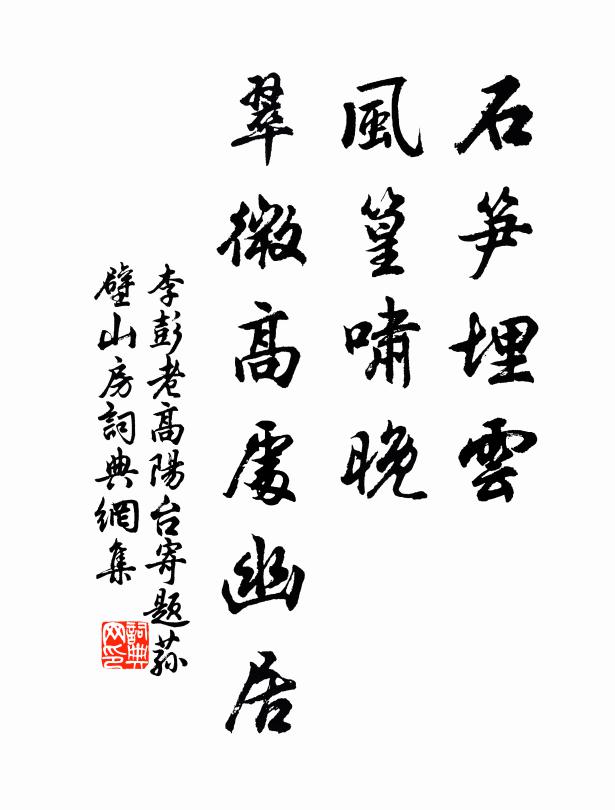 石笋埋雲
風篁嘯晚
翠微高處幽居
李彭老高陽台寄題蓀
壁山房詞典網集
詞典
网印